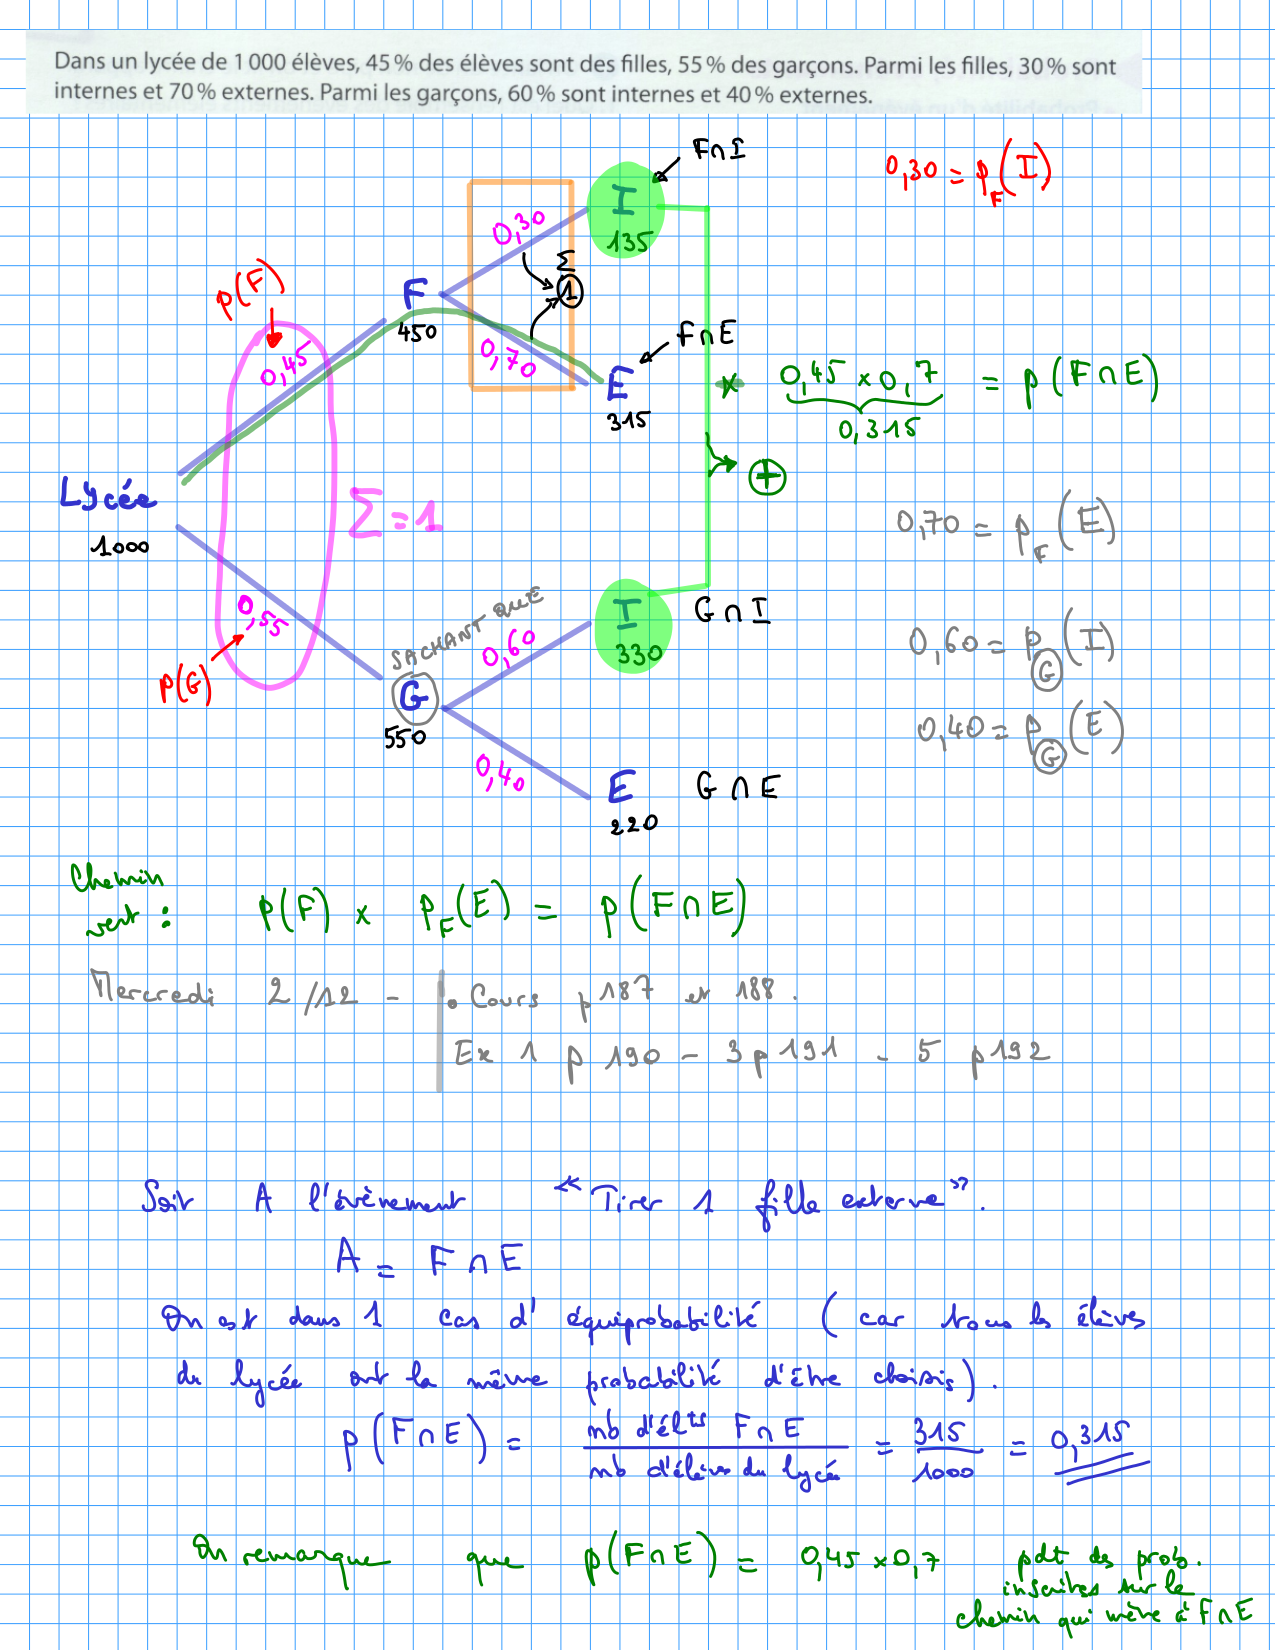 Dans un lycée de 1 000 élèves, 45 % des élèves sont des filles, 55 % des garçons. Parmi les filles, 30 % sont
internes et 70 % externes. Parmi les garçons, 60 % sont internes et 40 % externes.
F∩I
0,30 = p_F(I)
I
135
0,30
Σ
1
p(F)
F
450
0,45
0,70
F∩E
E
315
* 0,45 × 0,7 = p(F∩E)
0,315
+
Lycée
1000
Σ = 1
0,70 = p_F(E)
0,55
p(G)
SACHANT QUE
G
550
0,60
I
330
G∩I
0,60 = p_G(I)
0,40 = p_G(E)
0,40
E
220
G∩E
Chemin
vert : p(F) × p_F(E) = p(F∩E)
Mercredi 2/12 - • Cours p 187 et 188.
Ex 1 p 190 - 3 p 191 - 5 p 192
Soit A l'évènement « Tirer 1 fille externe ».
A = F∩E
On est dans 1 cas d'équiprobabilité (car tous les élèves
du lycée ont la même probabilité d'être choisis).
p(F∩E) = nb d'élts F∩E / nb d'élèves du lycée = 315/1000 = 0,315
On remarque que p(F∩E) = 0,45 × 0,7 pdt des prob.
inscrites sur le
chemin qui mène à F∩E